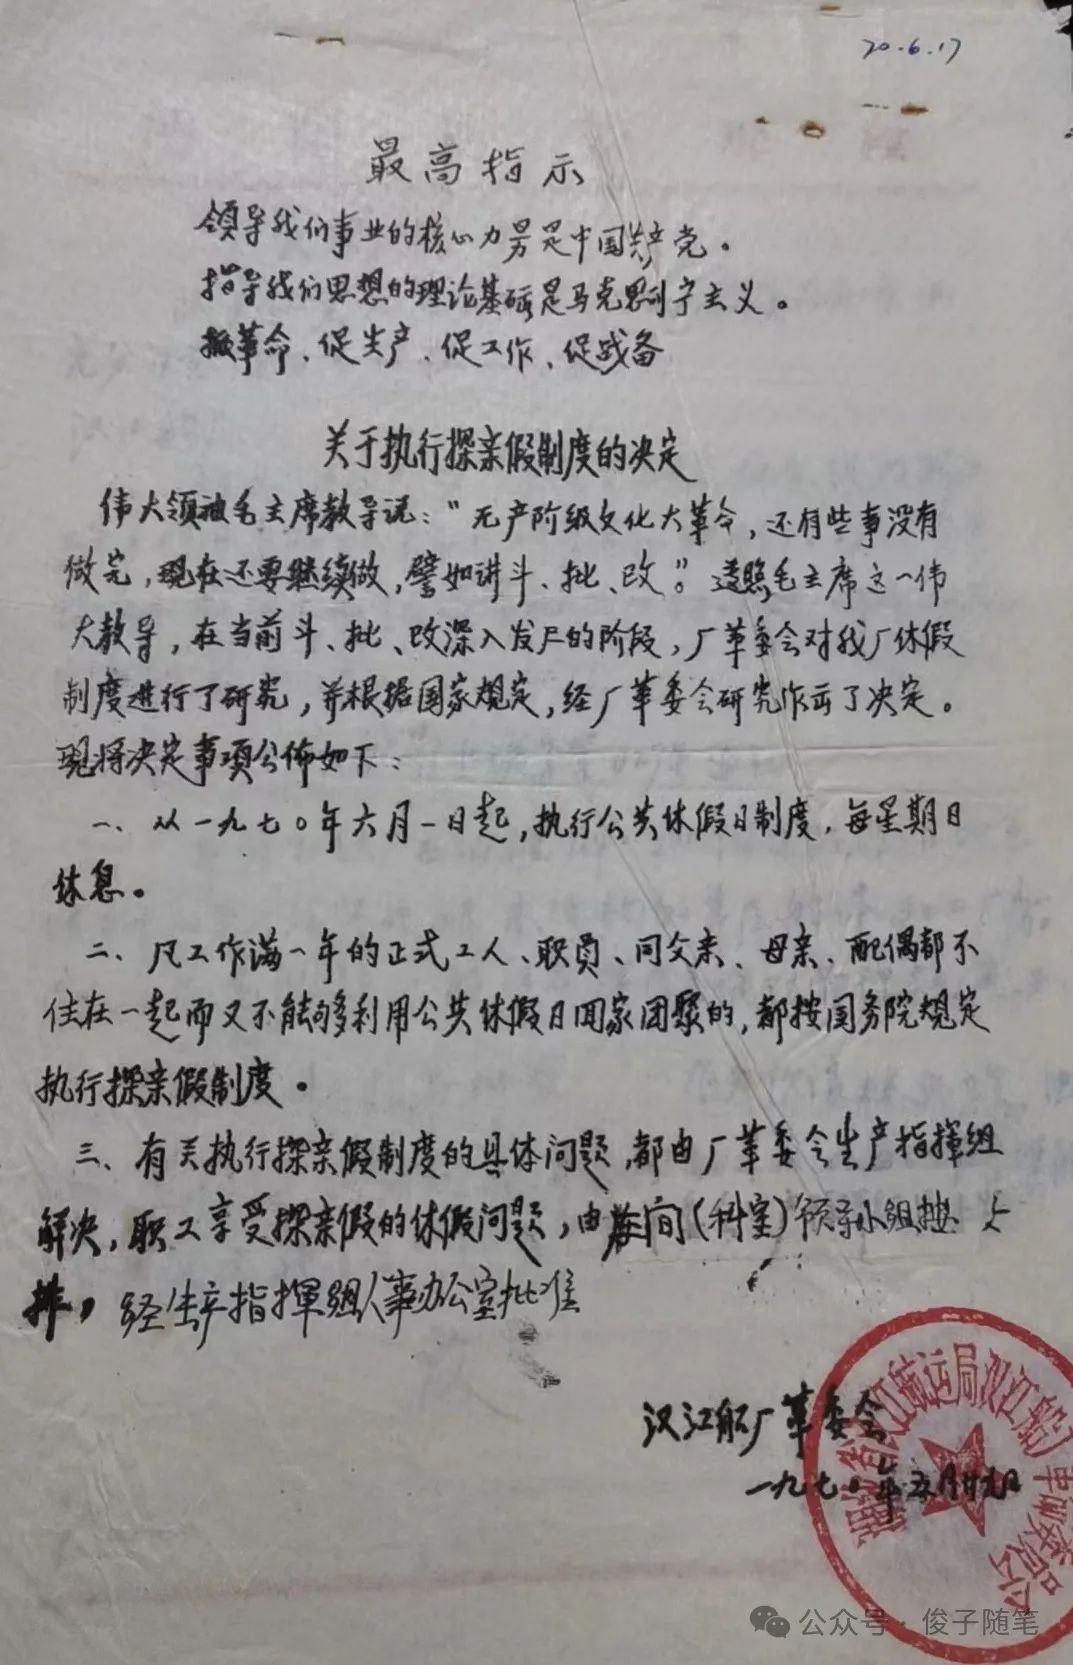 20.6.17
最高指示
领导我们事业的核心力量是中国共产党。
指导我们思想的理论基础是马克思列宁主义。
抓革命、促生产、促工作、促战备
关于执行探亲假制度的决定
伟大领袖毛主席教导说：“无产阶级文化大革命，还有些事没有
做完，现在还要继续做，譬如讲斗、批、改”。遵照毛主席这一伟
大教导，在当前斗、批、改深入发展的阶段，厂革委会对我厂休假
制度进行了研究，并根据国家规定，经厂革委会研究作出了决定。
现将决定事项公佈如下：
一、从一九七〇年六月一日起，执行公共休假日制度，每星期日
休息。
二、凡工作满一年的正式工人、职员、同父亲、母亲、配偶都不
住在一起而又不能够利用公共休假日回家团聚的，都按国务院规定
执行探亲假制度。
三、有关执行探亲假制度的具体问题，都由厂革委会生产指挥组
解决，职工享受探亲假的休假问题，由车间（科室）领导小组按
排，经生产指挥组人事办公室批准
汉江船厂革委会
一九七〇年五月廿九日
湖北省汉江航运局汉江船厂革命委员会
公众号·俊子随笔